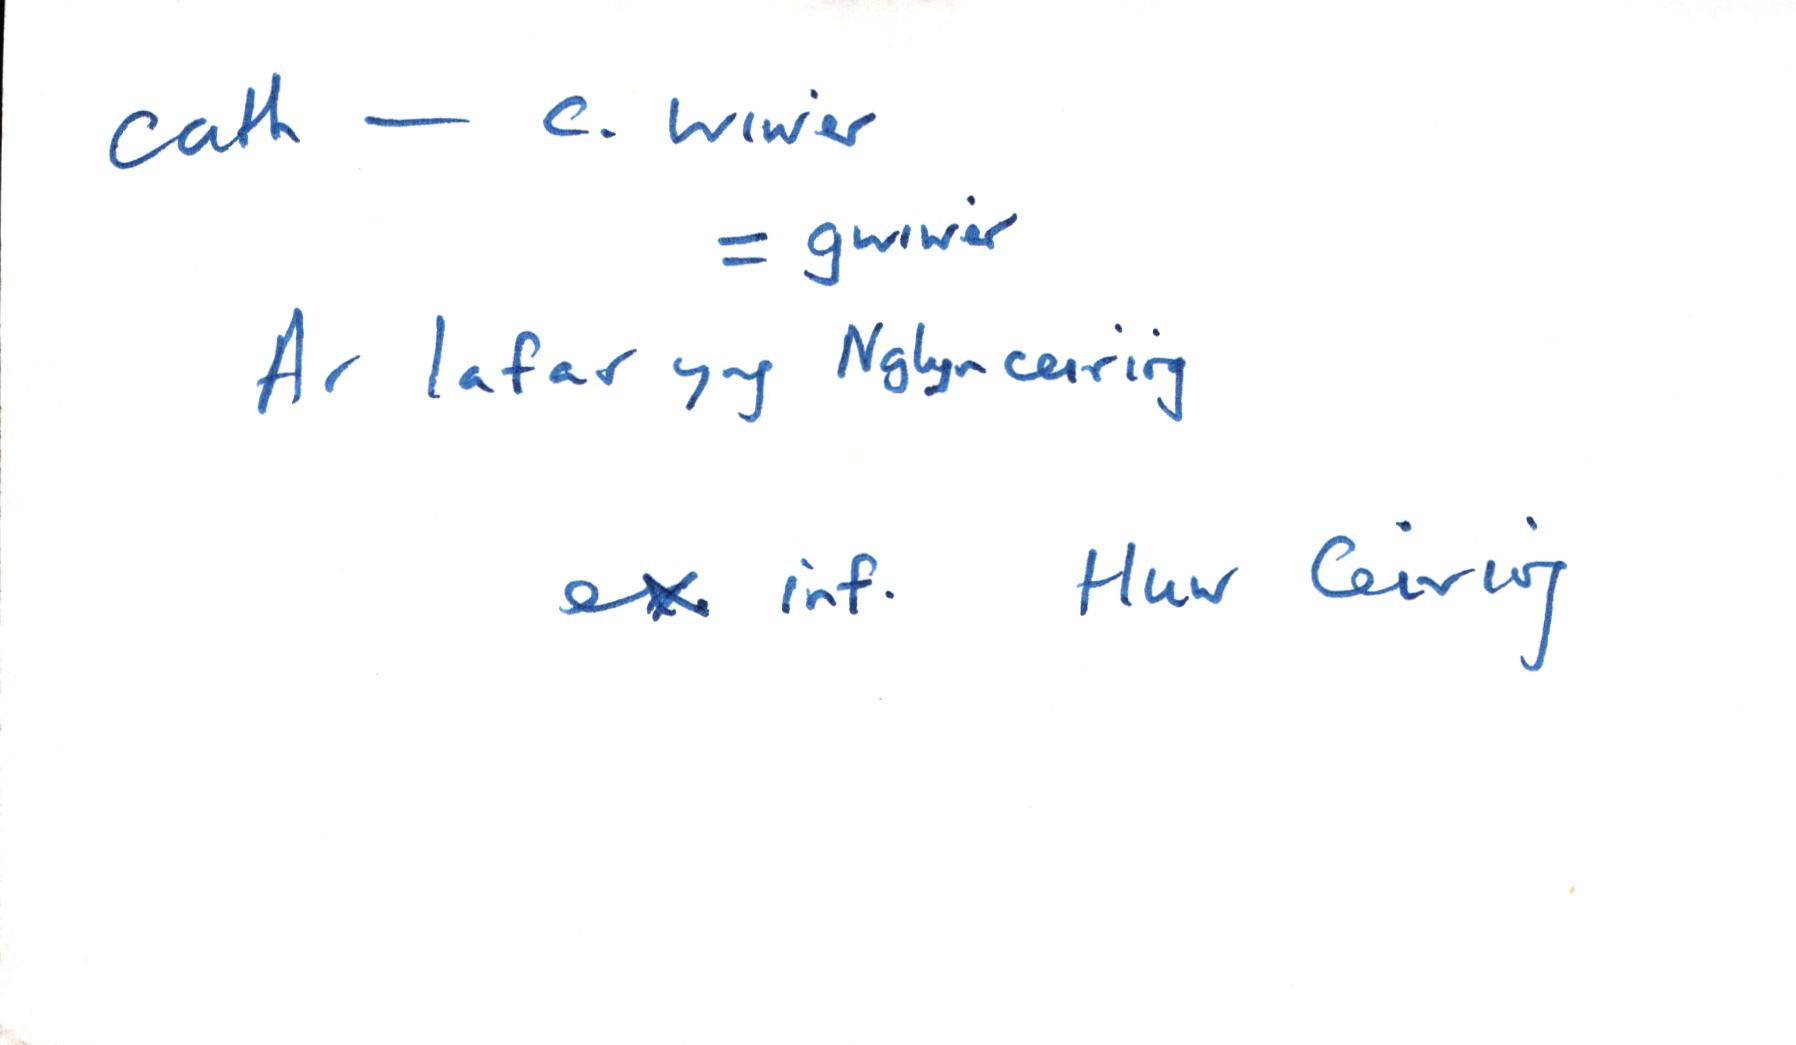 cath — c. wiwer
= gwiwer
Ar lafar yng Nglynceiriog
ex inf. Huw Ceiriog